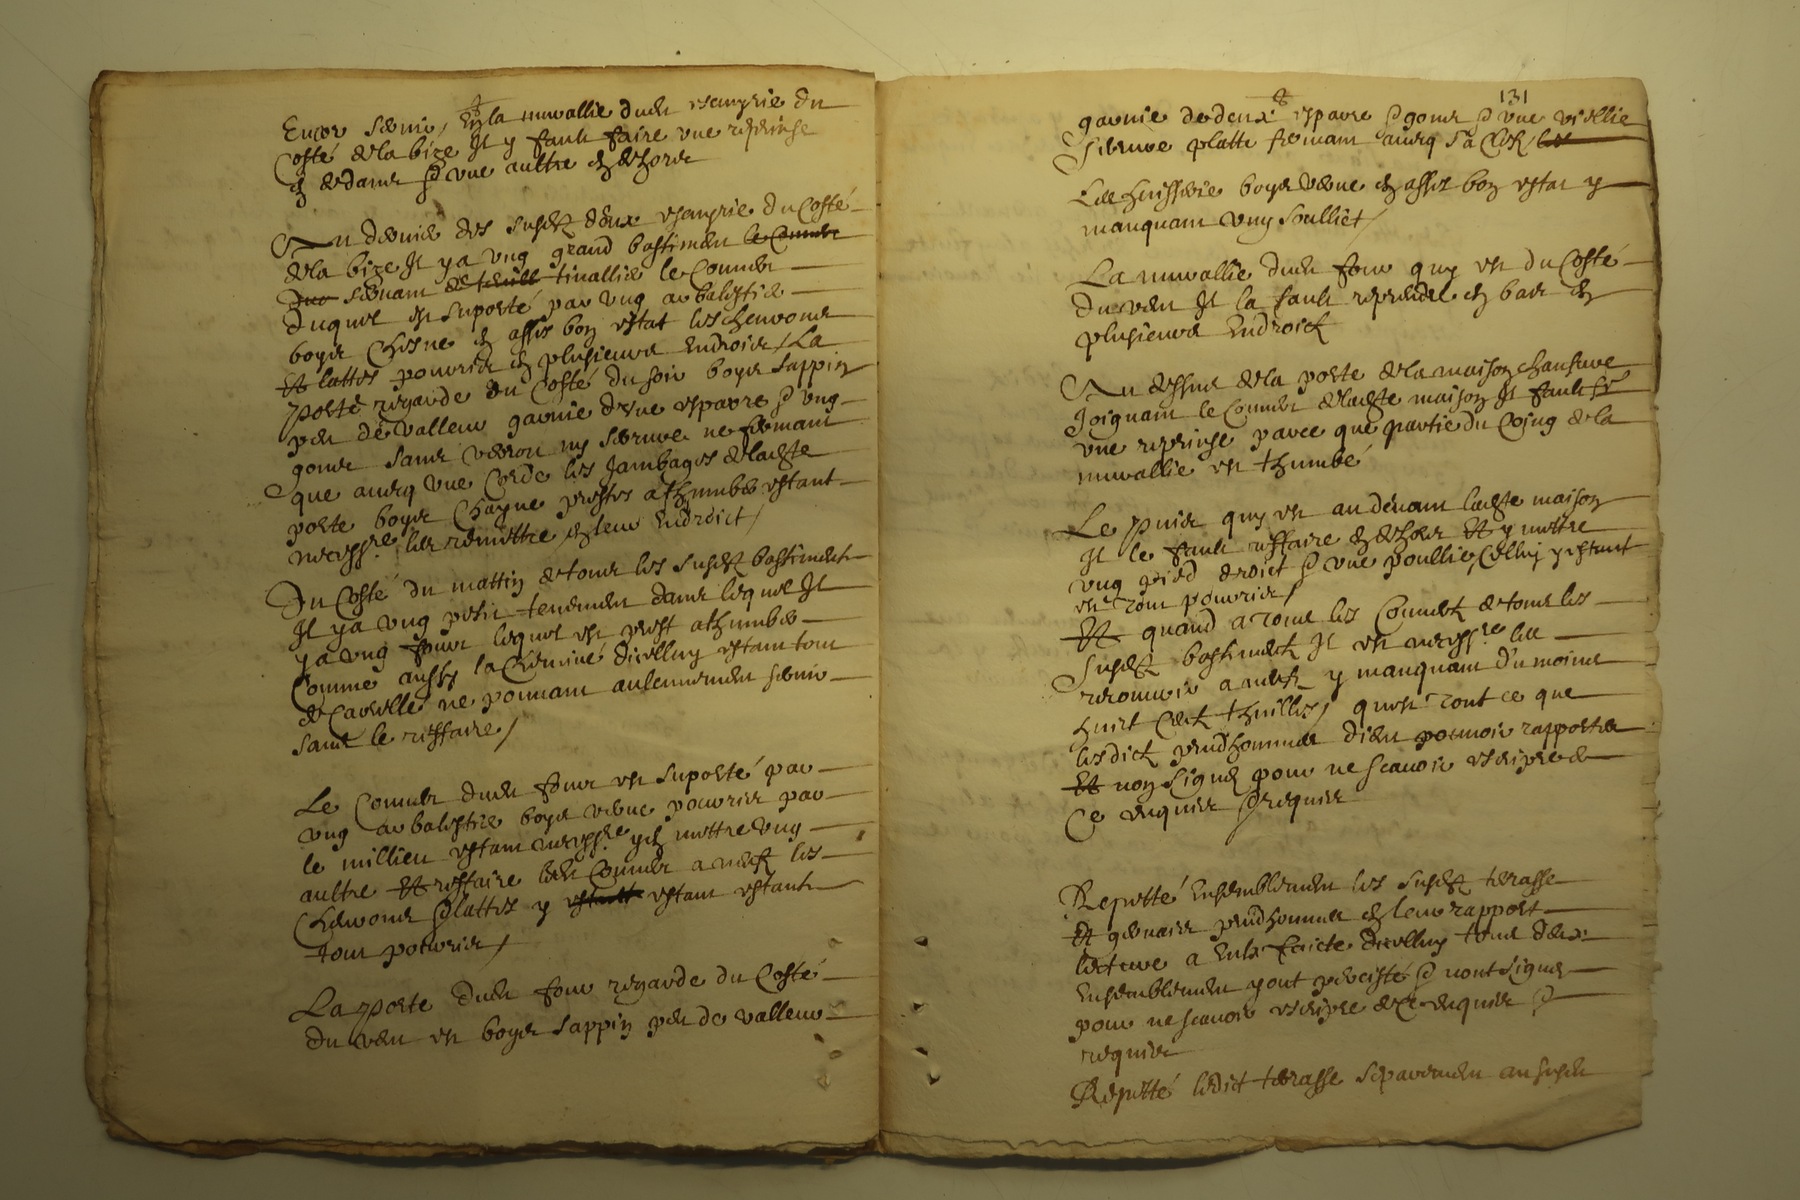 Encor servir, En la muraillie dudit estangrie du
Costé de la bize Il y fault faire une reprinse
en dedans et une aultre en dehors
Au dernier des susdits deux estangrie du Costé
de la bize Il y a ung grand bastiment le Couvert
servant tinallier le Couvert
duquel est suporté par ung arbalestier
boys Chesne en asses bon estat les chevrons
Et lattes pourries en plusieurs Endroits / La
porte regarde du Costé du soir boys sappin
peu de valleur garnie d'une espare et ung
gond sans verroux ny serrure ne fermant
que avecq une Corde les Jambages de ladite
porte boys Chayne prestes a thumber estant
necessre les remettre en leur Endroict /
Du Costé du mattin de tous les susdits bastiments
Il y a ung petit tenement dans lequel Il
y a ung four lequel est prest a thumber
Comme aussy la Cheminé dicelluy estant tout
de Carrellé ne pouvant aulcunement servir
sans le reffaire /
Le Couvert dudit four est suporté par
ung arbalestrier boys verne pourrier par
le millieu estant necessre y en mettre ung
aultre Et reffaire ledit Couvert a neuf les
Chevrons et lattes y estant estants
tout pourries /
La porte dudit four regarde du Costé
du vent est boys sappin peu de valleur
131
garnie de deux espares et gonds et une viellie
serrure platte fermant avecq sa Clef /
Les huisserie boys verne en asses bon estat y
manquant ung soulliet /
La muraillie dudit four quy est du Costé
du vent Il la fault reprendre en bas en
plusieurs Endroict
Au dessus de la porte de la maison
Joignant le Couvert de ladite maison Il fault
une reprinse parce que partie du Coing de la
muraillie est thumbé
Le puis quy est au devant ladite maison
Il le fault reffaire en dehors Et y mettre
ung pied droict et une poullie, Celluy y estant
est tout pourrier /
Et quand a tous les Couverts de tous les
susdits bastiments Il est necessre les
recouvrir a neufz y manquant du moins
huict Cents thuilles / quest tout ce que
lesdicts prudhommes dient pouvoir rapporter
Et non signer pour ne scavoir escripre de
Ce enquis et requis
Repetté Ensemblement les susdits terrasse
Et prudhommes en leur rapport
lecture a Eulx faicte dicelluy tous deux
Ensemblement y ont percisté et nont signer
pour ne scavoir escripre de Ce enquis et
requis
Repetté ledict terrasse separement au susdit